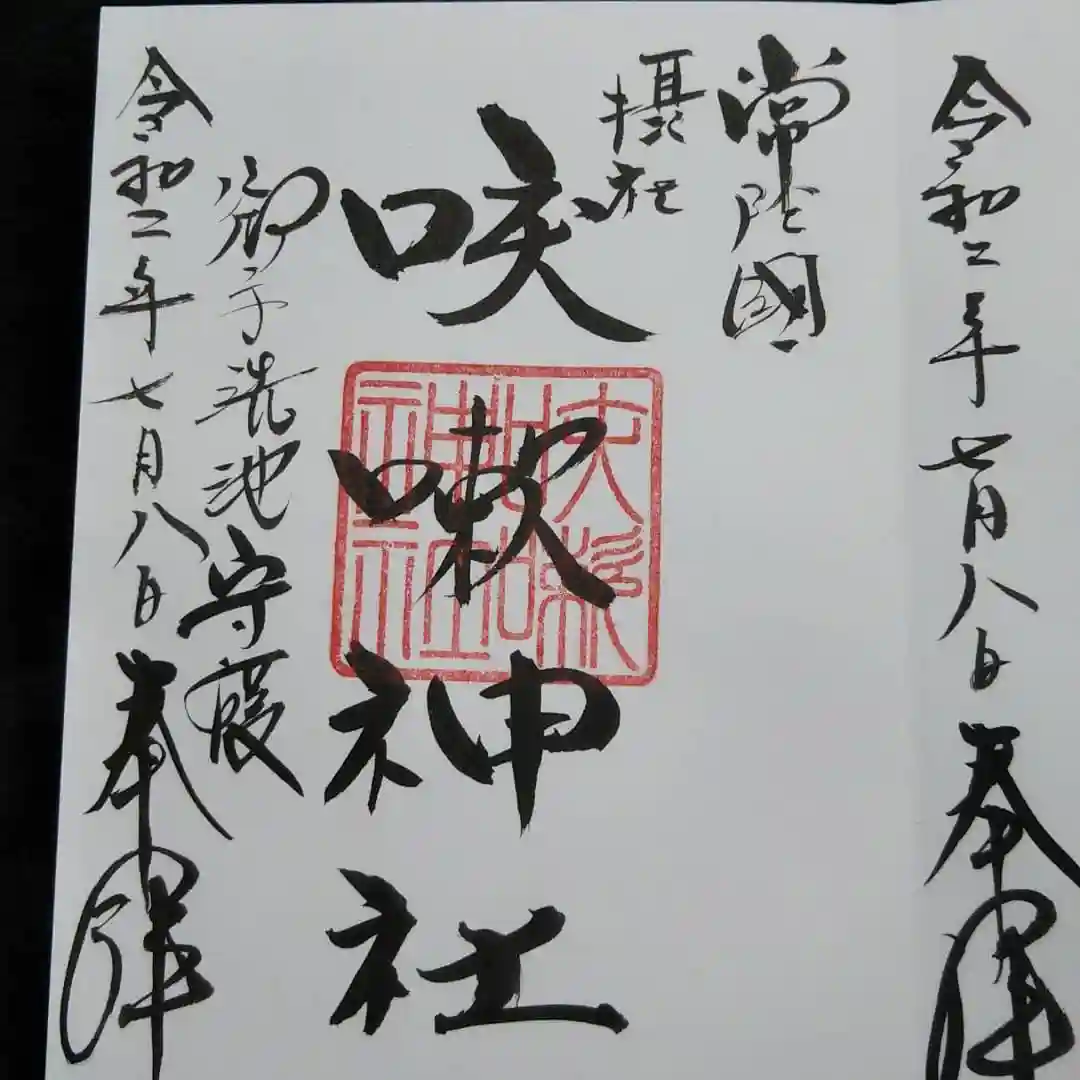 令和二年七月八日 奉拝
常陸國
摂社
吷嗽神社
御手洗池守護
令和二年七月八日 奉拝